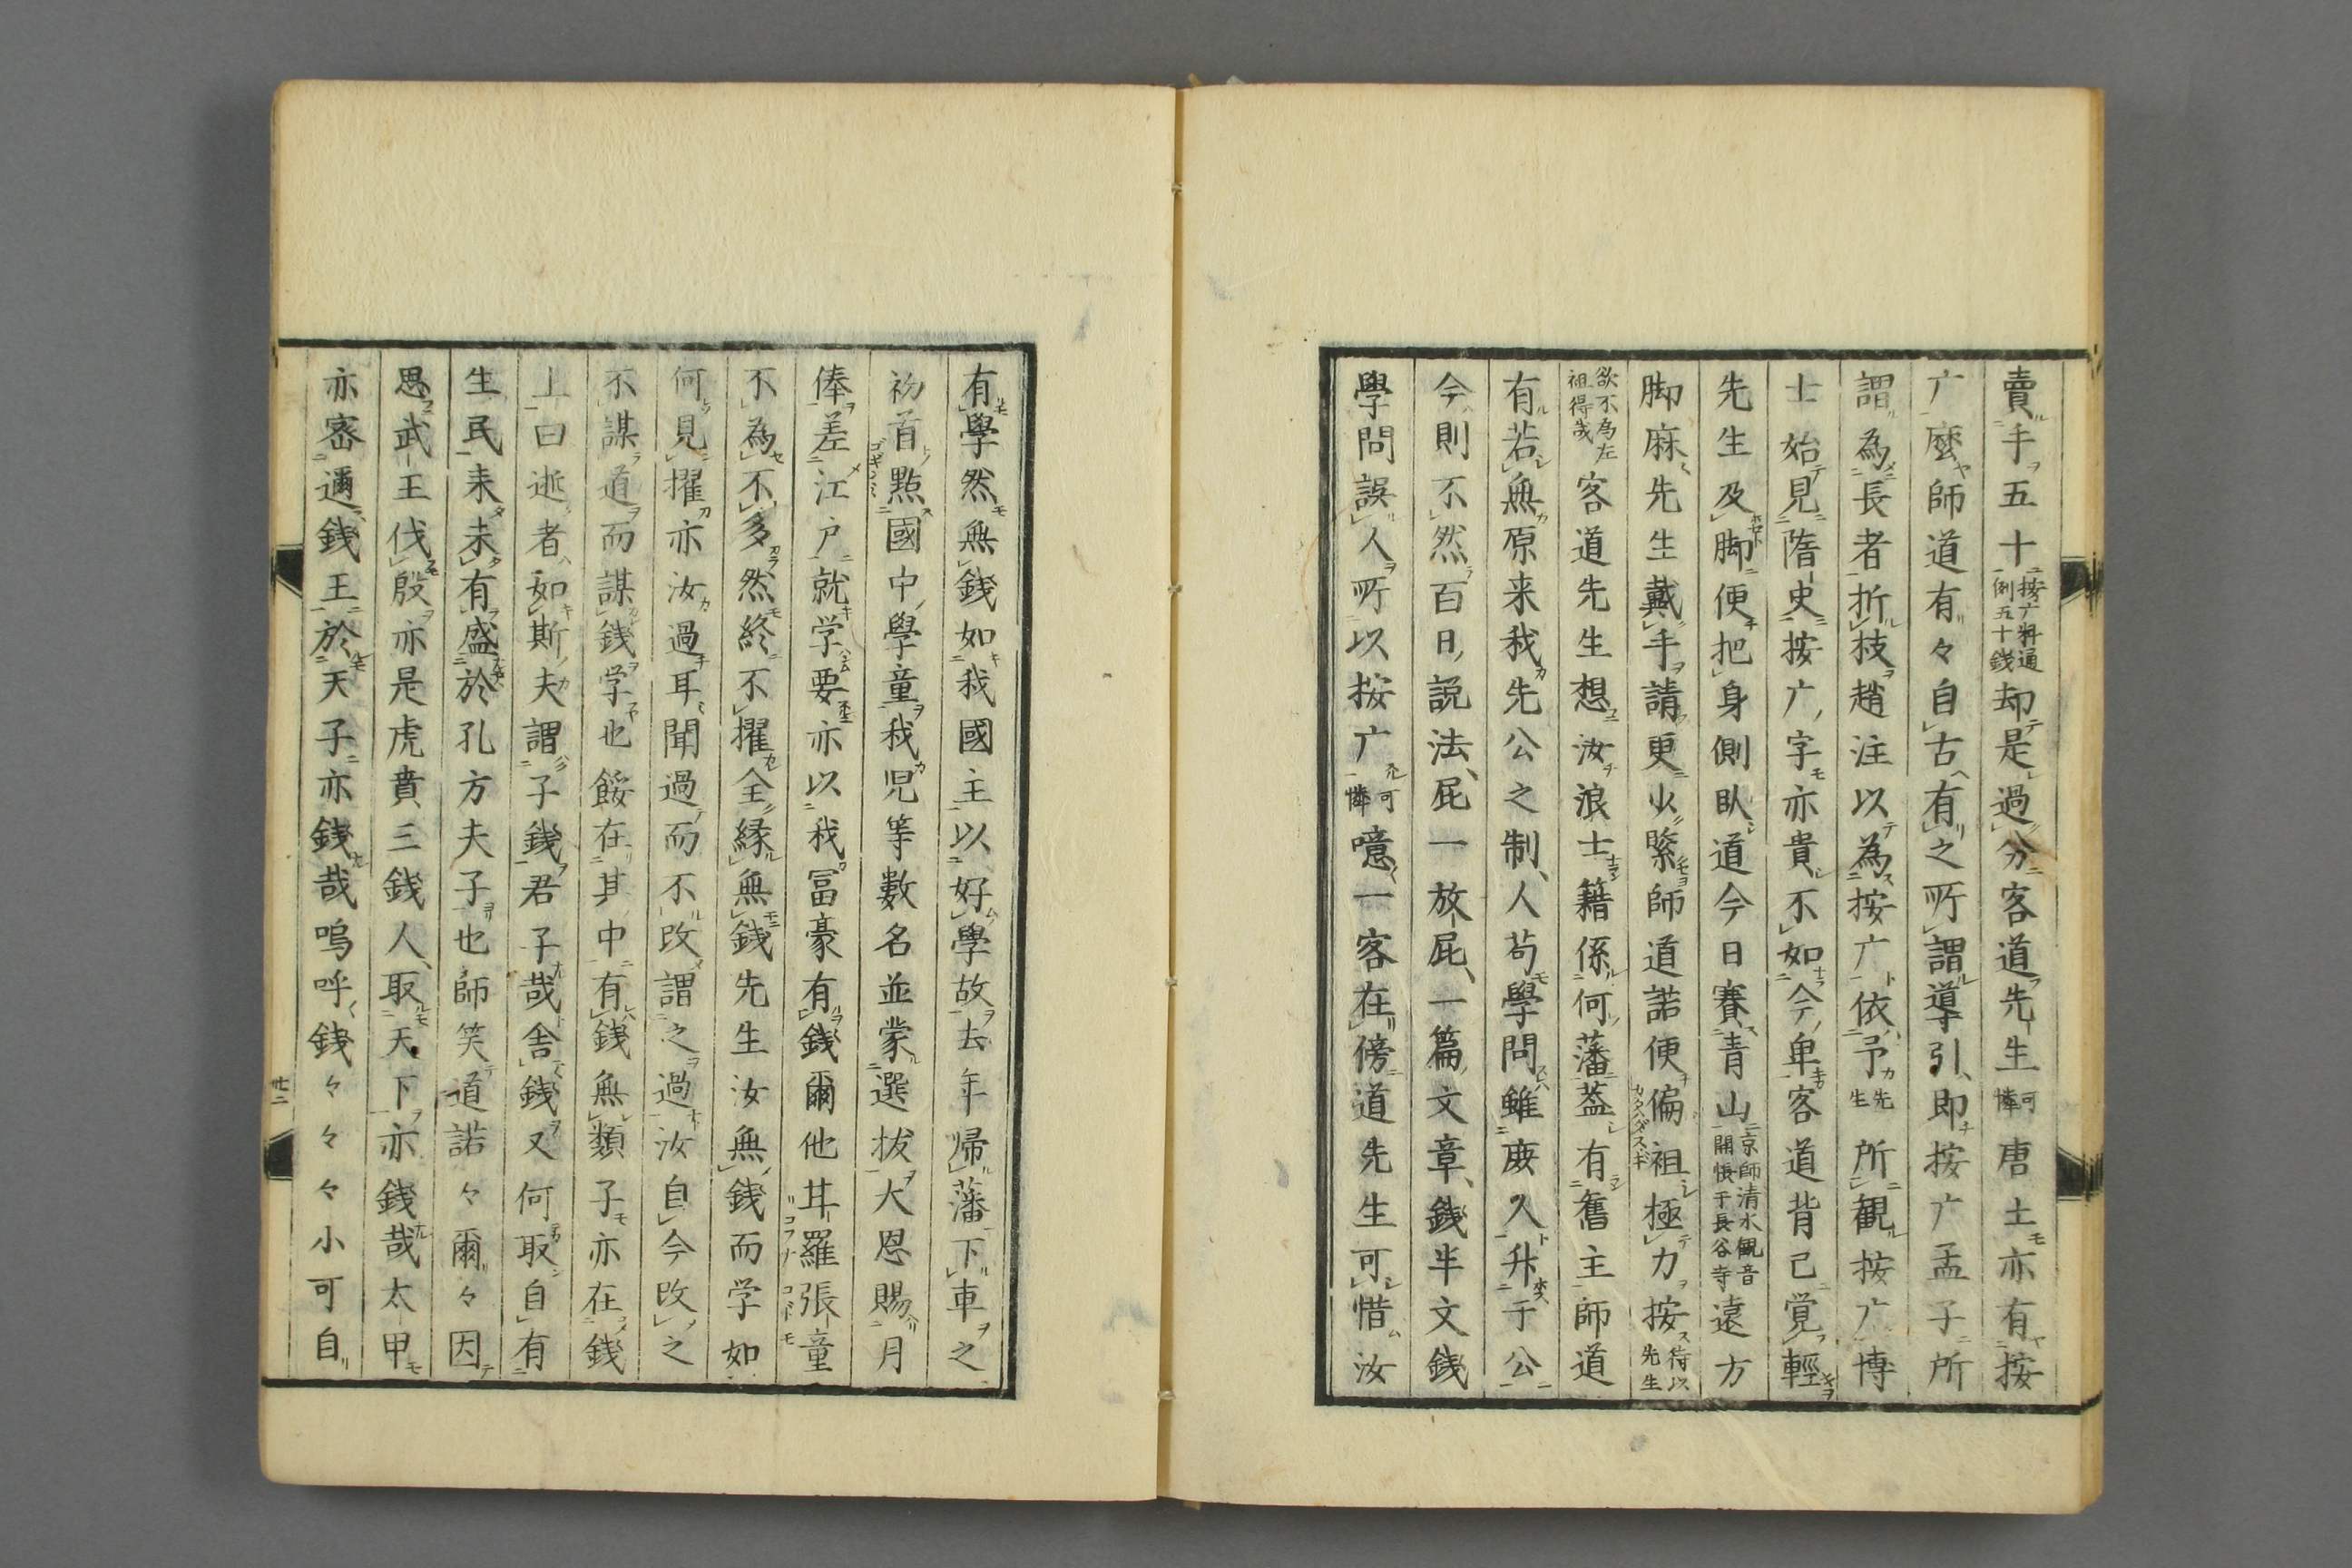 賣手五十按广料通例五十錢却是過分客道先生可憐唐土亦有按
广麼師道有々自古有之所謂導引即按广孟子所
謂為長者折枝趙注以為按广依予先生所観按广博
士始見隋史按广字亦貴不如今卑客道背已覚輕
先生及脚便把身側臥道今日賽青山京師清水観音開帳于長谷寺遠方
脚麻先生戴手請更少緊師道諾便偏袒極力按待以先生
欲不為左袒得哉客道先生想汝浪士籍係何藩蓋有舊主師道
有若無原来我先公之制人苟學問雖庾入升于公
今則不然百日説法屁一放屁一篇文章錢半文錢
學問誤人所以按广可憐噫一客在傍道先生可惜汝
有學然無錢如我國主以好學故去年帰藩下車之
初首點國中學童我児等數名並蒙選拔大恩賜月
俸差江戸就学要亦以我冨豪有錢爾他耳羅張童
不為不多然終不擢全縁無錢先生汝無錢而学如
何見擢亦汝過耳聞過而不改謂之過汝自今改之
不謀道而謀錢学也餒在其中有錢無類子亦在錢
上曰逝者如斯夫謂子錢君子哉舎錢又何取自有
生民来未有盛於孔方夫子也師笑道諾々爾々因
思武王伐殷亦是虎賁三錢人取天下亦錢哉太甲
亦密邇錢王於天子亦錢哉嗚呼錢々々々小可自
廿二